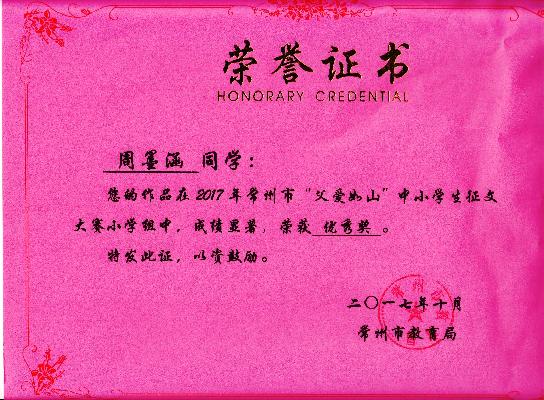 荣誉证书
HONORARY CREDENTIAL
周墨涵 同学：
您的作品在2017年常州市“父爱如山”中小学生征文
大赛小学组中，成绩显著，荣获 优秀奖 。
特发此证，以资鼓励。
二〇一七年十月
常州市教育局